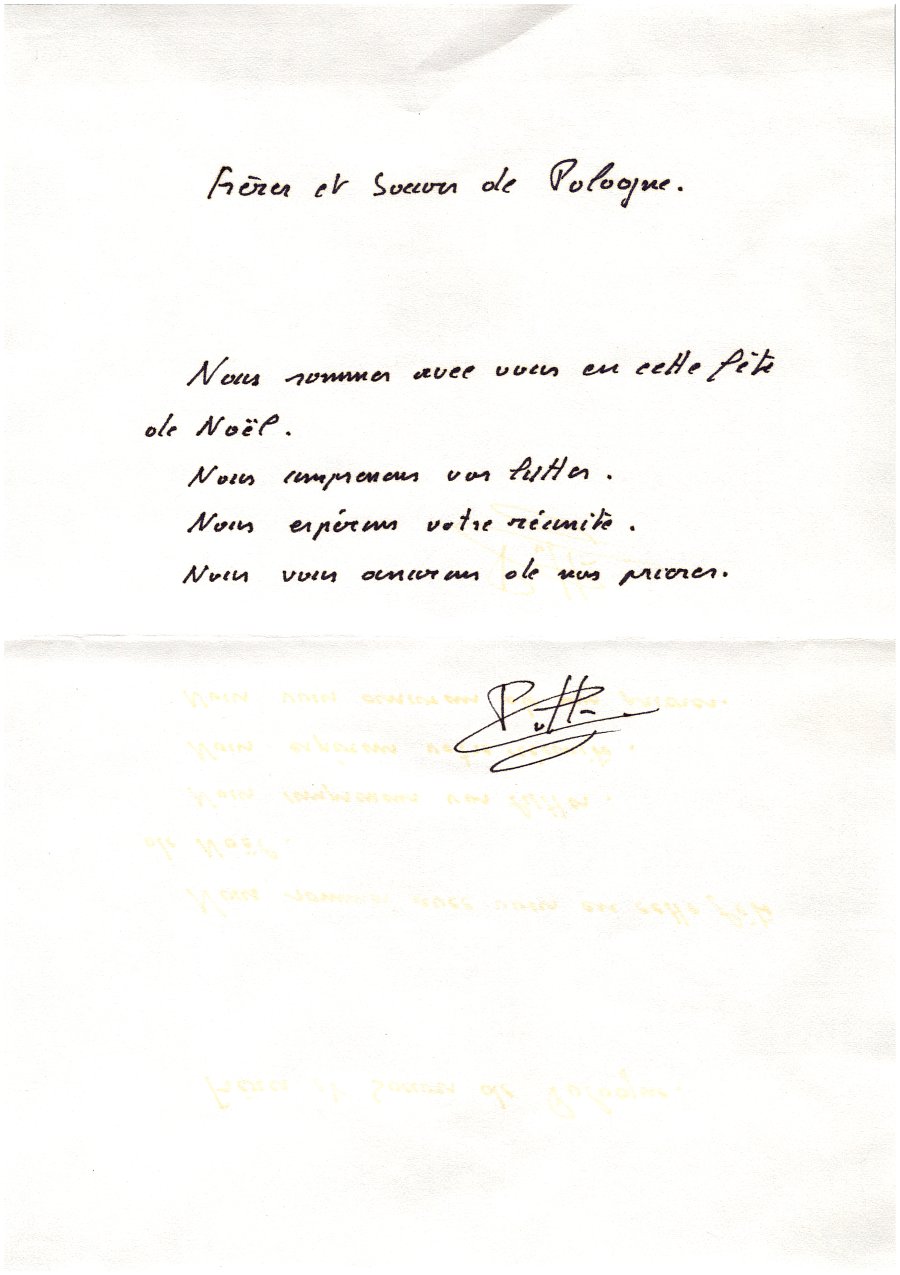 Frères et Soeurs de Pologne.
Nous sommes avec vous en cette fête
de Noël.
Nous comprenons vos luttes.
Nous espérons votre réunité.
Nous vous assurons de nos prières.